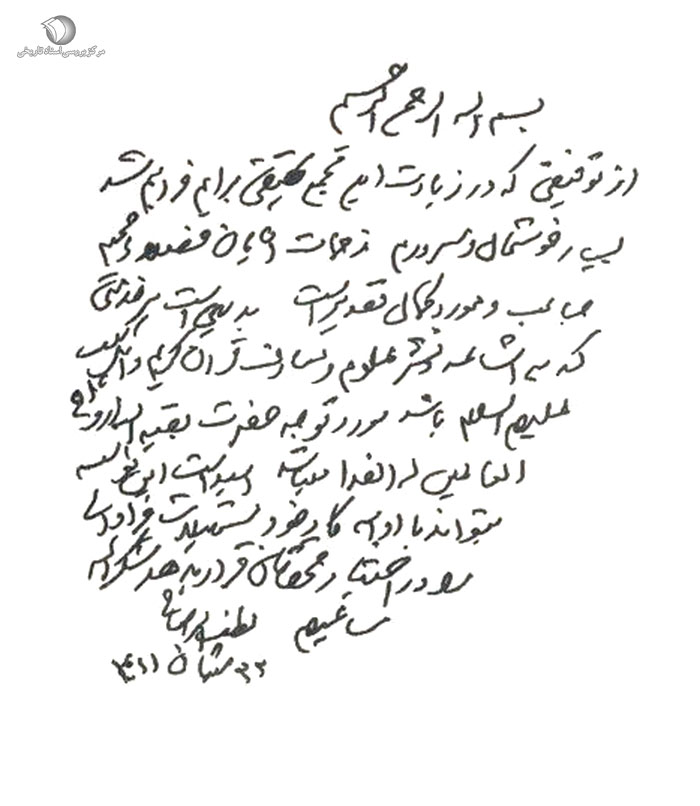 مرکز بررسی اسناد تاریخی
بسم الله الرحمن الرحیم
از توفیقی که در زیارت این مجمع تحقیقی برایم فراهم شد
بسیار خوشحال و مسرورم زحمات آقایان فضلاء محترم
جالب و مورد کمال تقدیر است بدیهی است هر خدمتی
که به اشاعه و نشر علوم و معارف قرآن کریم و اهل بیت
علیهم السلام باشد مورد توجه حضرت بقیه الله ارواح
العالمین له الفداء میباشد امید است این مؤسسه
بتواند با ادامه کار خود تسهیلات فراوانی
را در اختیار محققان قرار بدهد شکر الله
مساعیهم لطف الله صافی
۲۲ شعبان ۱۴۱۱